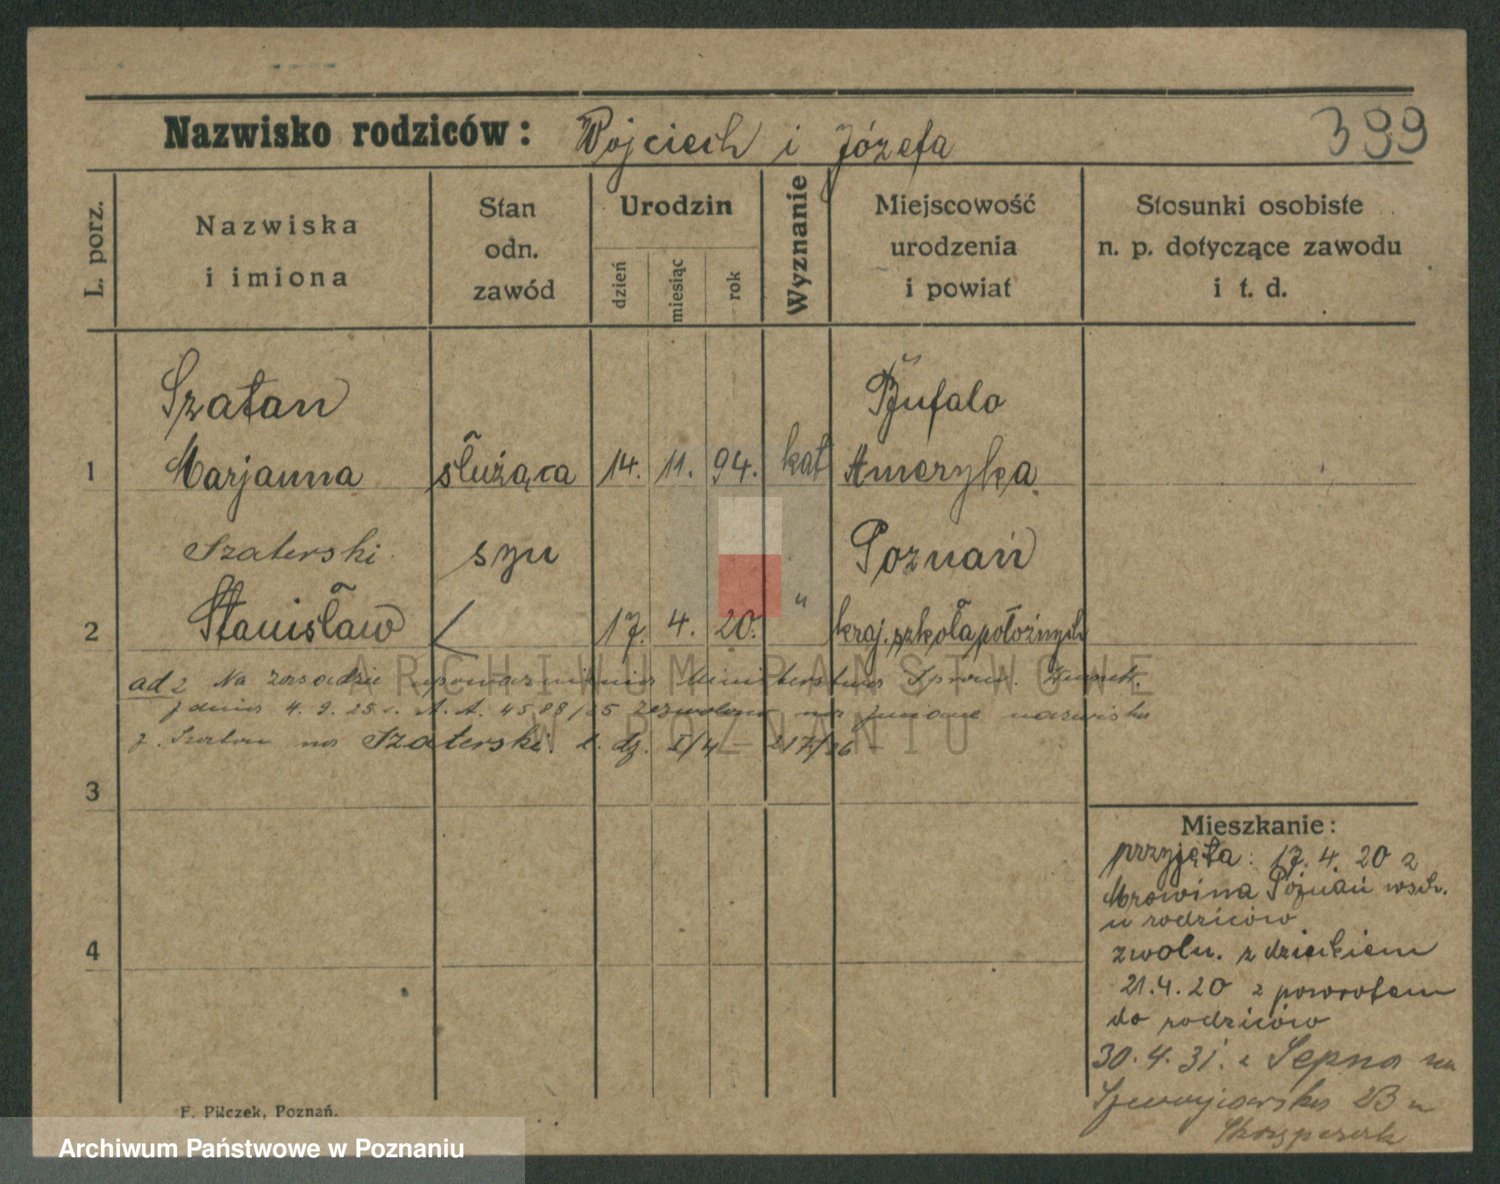 Nazwisko rodziców: Wojciech i Józefa 399
L. porz.
Nazwiska
i imiona
Stan
odn.
zawód
Urodzin
dzień
miesiąc
rok
Wyznanie
Miejscowość
urodzenia
i powiat
Stosunki osobiste
n. p. dotyczące zawodu
i t. d.
Szatan Bufalo
1 Marjanna służąca 14. 11. 94. kat Ameryka
Szaterski syn Poznań
2 Stanisław 17. 4. 20. " kraj. szkoła położnych
ad 2 Na zasadzie upoważnienia Ministerstwa Spraw. Wewnętr.
z dnia 4. 9. 25 r. A. A. 4588/25 zezwolono na zmianę nazwiska
z Szatan na Szaterski. l. dz. I/4 - 217/26
3
4
Mieszkanie:
przyjęta: 17. 4. 20 z
Mrowina Poznań wsch.
u rodziców
zwoln. z dzieckiem
21. 4. 20 z powrotem
do rodziców
30. 4. 31. z Sepna na
2B u
F. Pilczek, Poznań.
ARCHIWUM PAŃSTWOWE
W POZNANIU
Archiwum Państwowe w Poznaniu